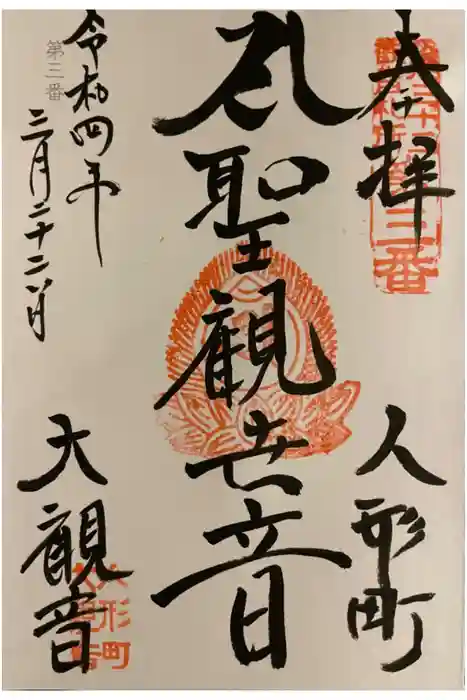 奉拝
人形町
聖観世音
第三番
令和四年
三月二十二日
大観音
人形町
三番